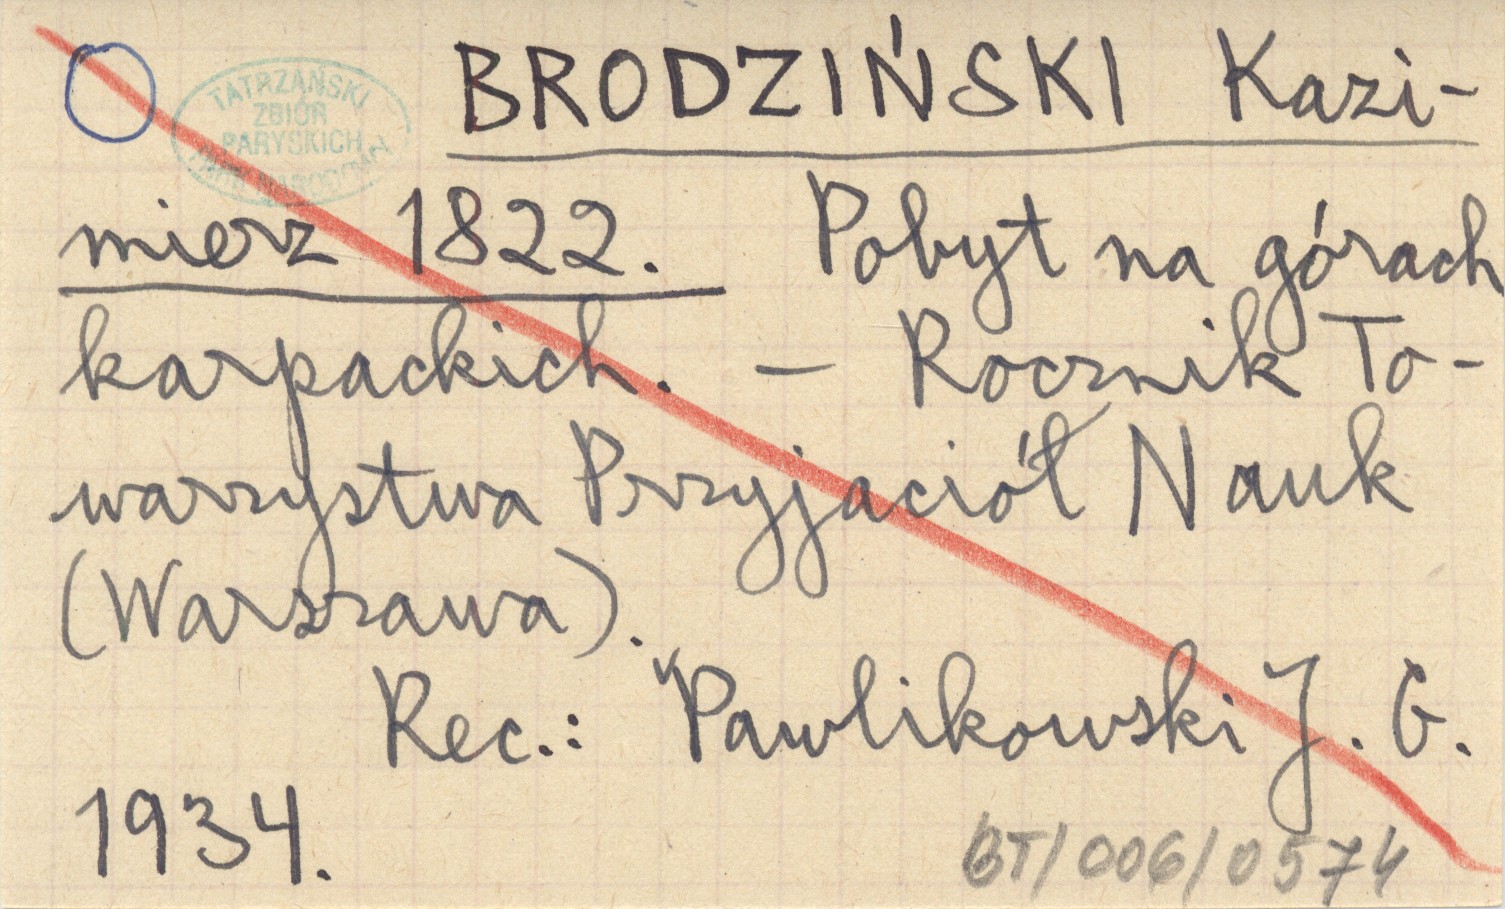 TATRZAŃSKI
ZBIÓR
PARYSKICH
BRODZIŃSKI Kazi-
mierz 1822. Pobyt na górach
karpackich. — Rocznik To-
warzystwa Przyjaciół Nauk
(Warszawa).
Rec.: Pawlikowski J. G.
1934.
BT/006/0574